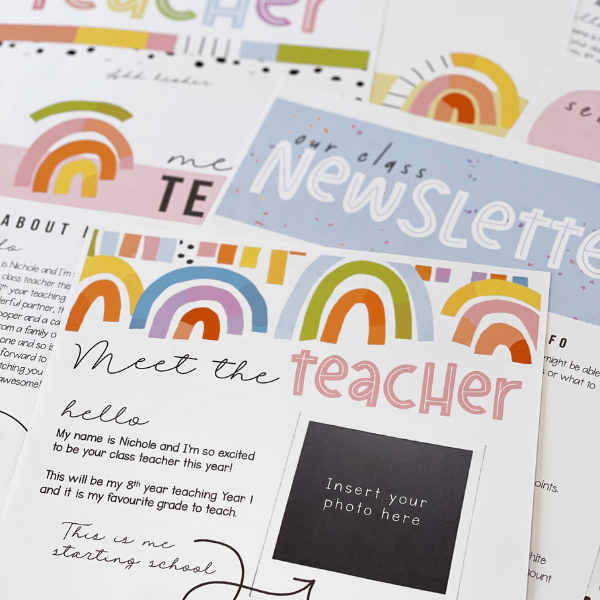 teacher
Add header
me
TE
ABOUT
is Nichole and I'm
class teacher this
year teaching
partner, th
ooper and a ca
from a family o
one and so is
forward to
tching you
awesome!
our class
Newslette
FO
might be able
s or what to
oints.
hite
ount
Meet the teacher
hello
My name is Nichole and I'm so excited
to be your class teacher this year!
This will be my 8th year teaching Year 1
and it is my favourite grade to teach.
This is me
starting school
Insert your
photo here